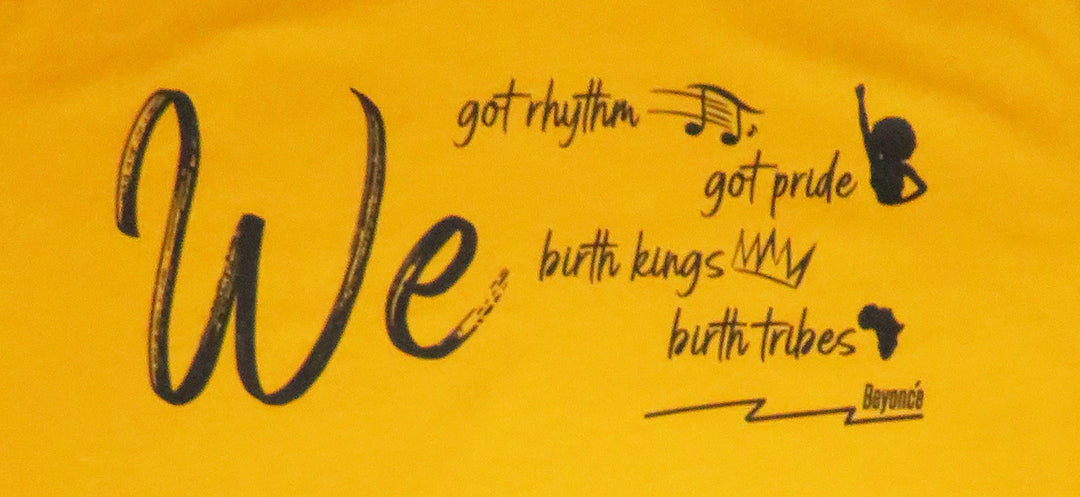 We
got rhythm
got pride
birth kings
birth tribes
Beyoncé